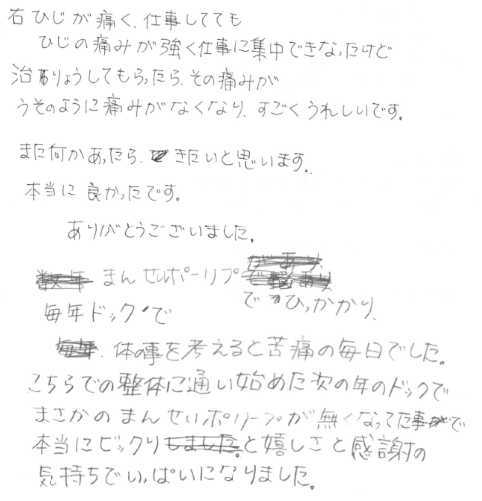 右ひじが痛く、仕事してても
ひじの痛みが強く仕事に集中できなったけど
治りょうしてもらったら、その痛みが
うそのように痛みがなくなり、すごくうれしいです。
また何かあったら、きたいと思います。
本当に良かったです。
ありがとうございました。
まんせいポーリプ
毎年ドックで
でひっかかり、
体の事を考えると苦痛の毎日でした。
こちらでの整体に通い始めた次の年のドックで
まさかのまんせいポリープが無くなってた事で
本当にビックリと嬉しさと感謝の
気持ちでいっぱいになりました。